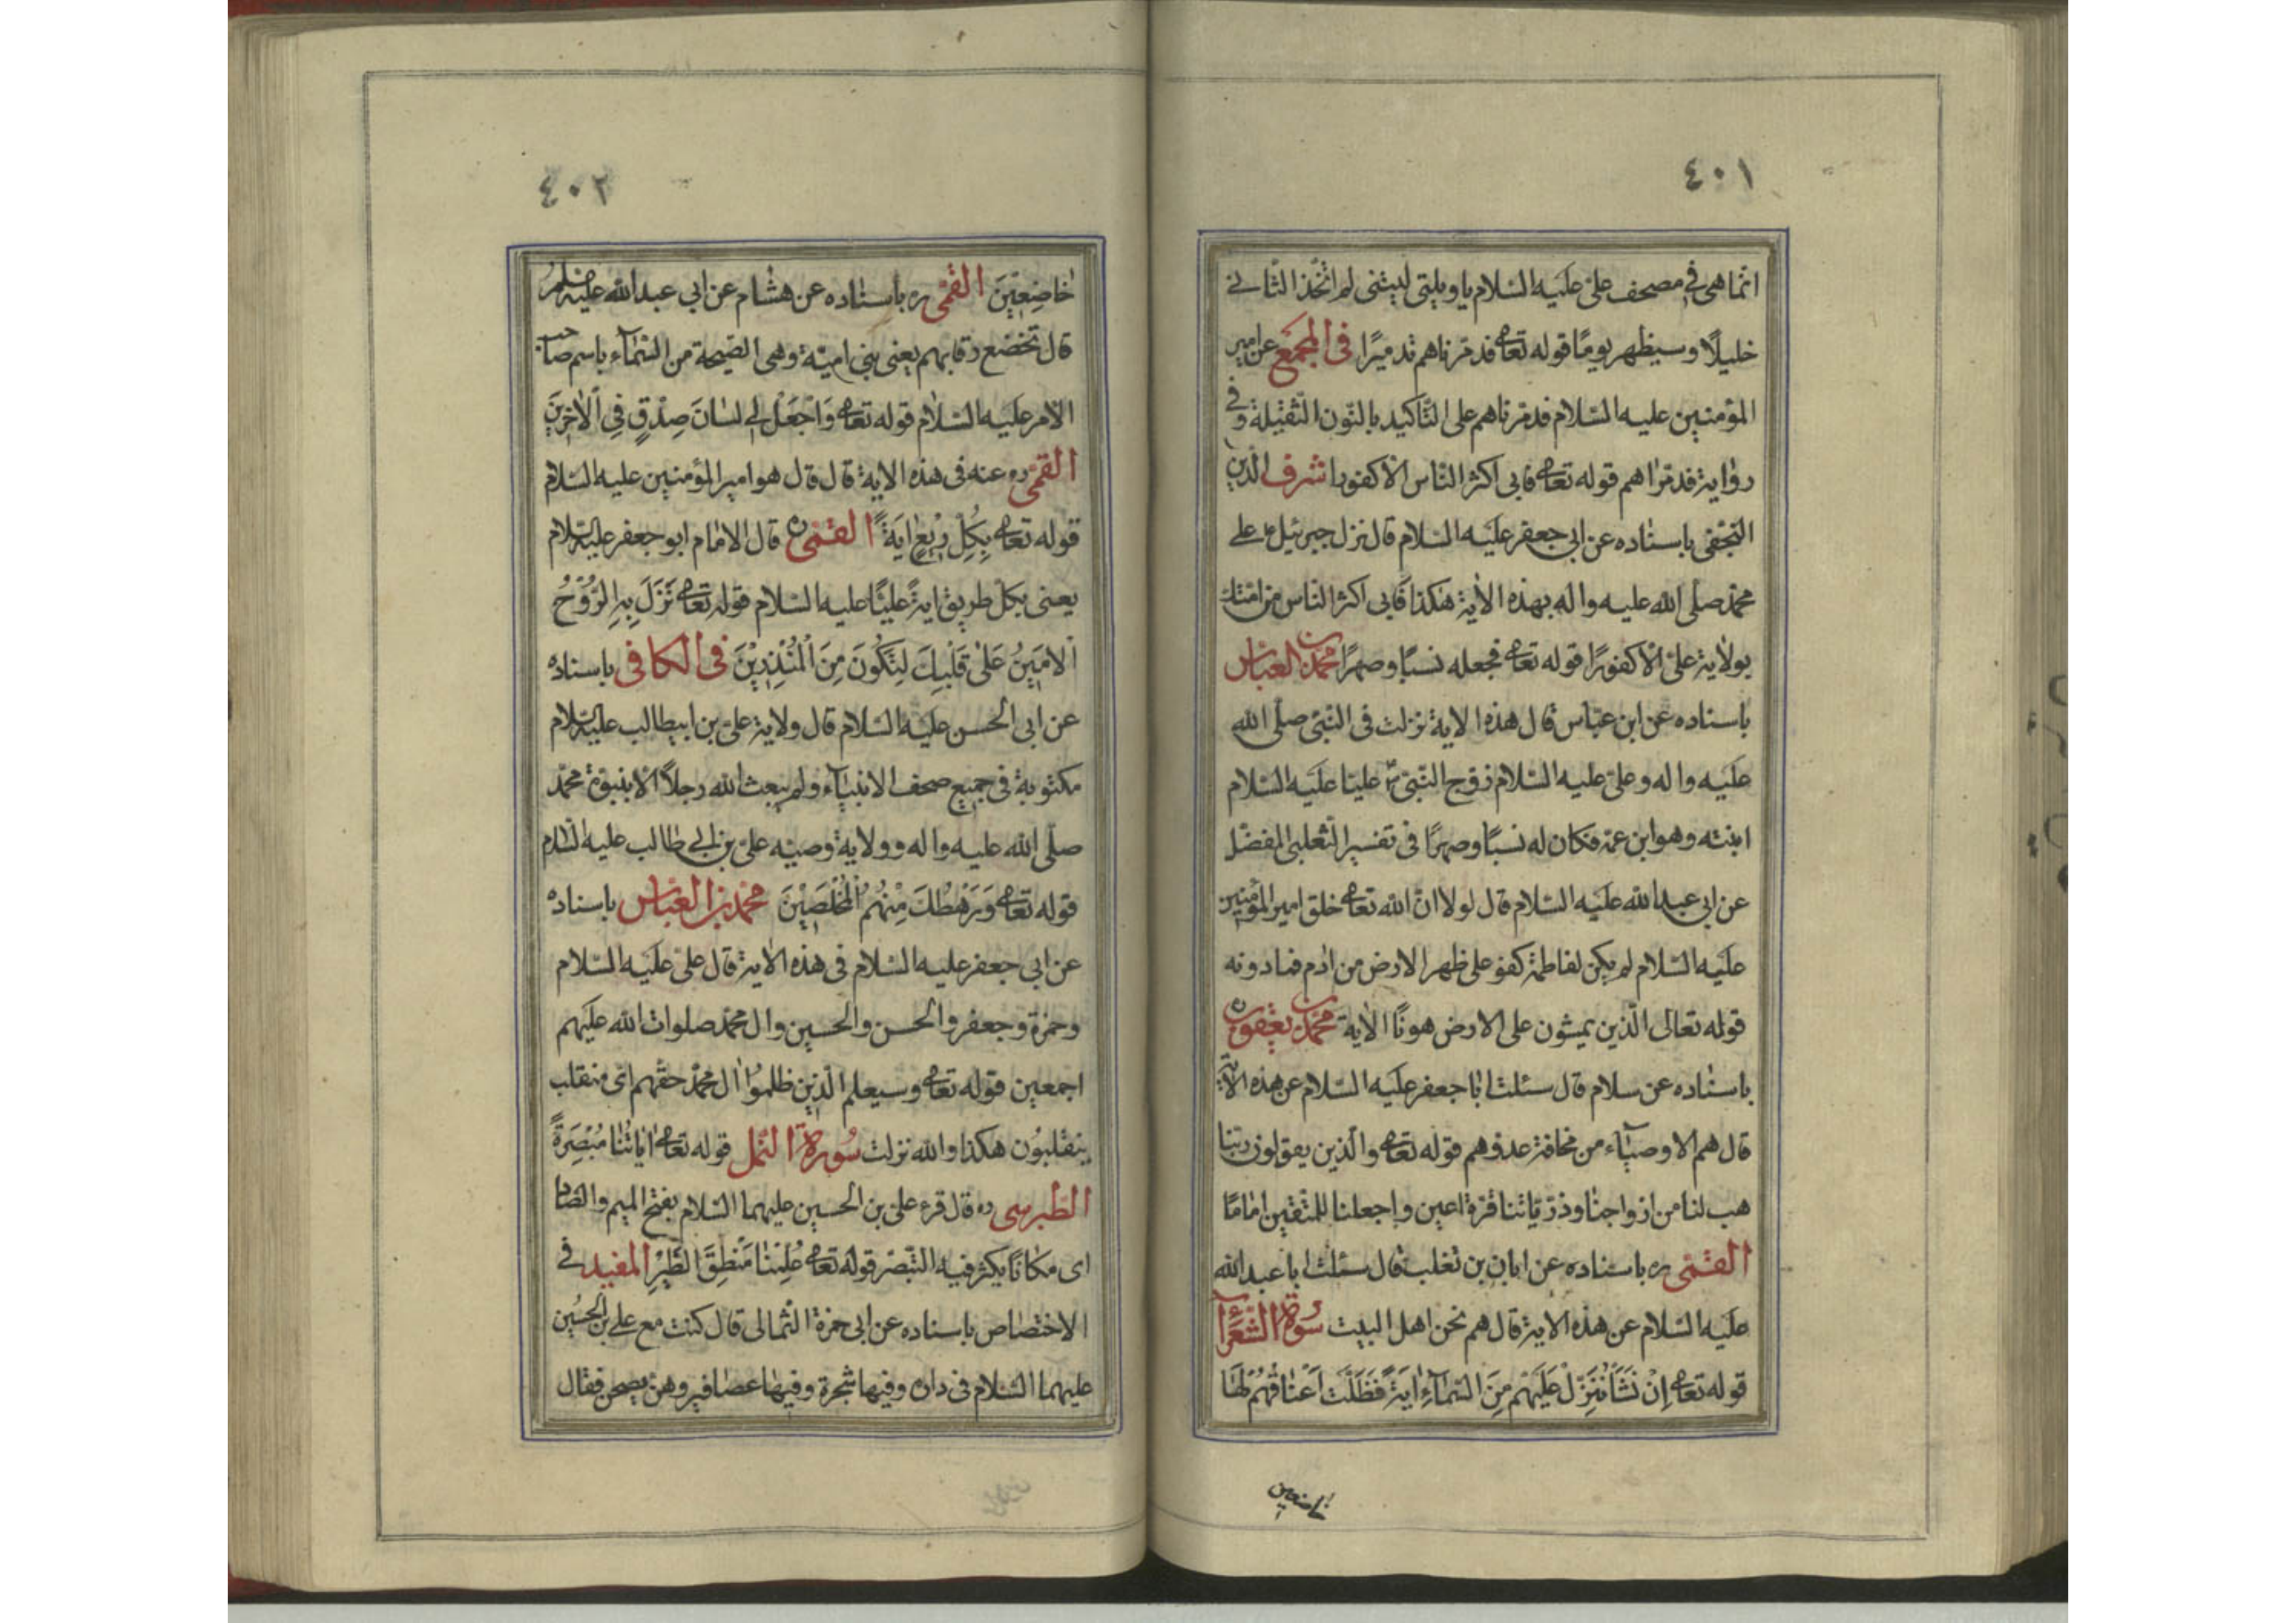 ٤٠١
انما هى فى مصحف على عليه السلام يا ويلتى ليتنى لم اتخذ الثانى
خليلًا وسيظهر يومًا قوله تعالى فدمرناهم تدميرًا فى المجمع عن امير
المؤمنين عليه السلام فدمرناهم على التاكيد بالنون الثقيلة وفى
رواية فدمراهم قوله تعالى فابى اكثر الناس الا كفورا شرف الدين
النجفى باسناده عن ابى جعفر عليه السلام قال نزل جبرئيل ع على
محمد صلى الله عليه واله بهذه الاية هكذا فابى اكثر الناس من امتك
بولاية على الا كفورًا قوله تعالى فجعله نسبًا وصهرًا محمد بن العباس
باسناده عن ابن عباس قال هذه الاية نزلت فى النبى صلى الله
عليه واله وعلى عليه السلام زوج النبى ص عليا عليه السلام
ابنته وهو ابن عمه فكان له نسبًا وصهرًا فى تفسير الثعلبى المفضل
عن ابى عبد الله عليه السلام قال لولا ان الله تعالى خلق امير المؤمنين
عليه السلام لم يكن لفاطمة كفو على ظهر الارض من ادم فمادونه
قوله تعالى الّذين يمشون على الارض هونًا الاية محمد بن يعقوب ره
باسناده عن سلام قال سئلت ابا جعفر عليه السلام عن هذه الاية
قال هم الاوصياء من مخافة عدوهم قوله تعالى والّذين يقولون ربنا
هب لنا من ازواجنا وذرياتنا قرة اعين واجعلنا للمتقين امامًا
القمى ره باسناده عن ابان بن تغلب قال سئلت ابا عبد الله
عليه السلام عن هذه الاية قال هم نحن اهل البيت سورة الشعرآ
قوله تعالى اِنْ نَشَأْ نُنَزِّلْ عَلَيْهِم مِنَ السَّمآءِ ايَةً فَظَلَّتْ اَعْناقُهُمْ لَهَا
خاضعين
٤٠٢
خاضِعِينَ القمى ره باسناده عن هشام عن ابى عبد الله عليه السلم
قال تخضع رقابهم يعنى بنى امية وهى الصيحة من السماء باسم صاحب
الامر عليه السلام قوله تعالى وَاجْعَلْ لِى لسانَ صِدْقٍ فِى الْاخِرِينَ
القمى ره عنه فى هذه الاية قال قال هو امير المؤمنين عليه السلام
قوله تعالى بِكُلِّ رِيْعٍ ايَةً القمى ره قال الامام ابو جعفر عليه السلام
يعنى بكل طريق اية عليًا عليه السلام قوله تعالى نَزَلَ بِهِ الرُّوْحُ
الْامِينُ عَلىٰ قَلْبِكَ لِتَكُونَ مِنَ الْمُنْذِرِيْنَ فى الكافى باسناده
عن ابى الحسن عليه السلام قال ولاية على بن ابيطالب عليه السلام
مكتوبة فى جميع صحف الانبيآء ولم يبعث الله رجلًا الا بنبوة محمد
صلى الله عليه واله وولاية وصيه على بن ابى طالب عليه السلام
قوله تعالى وَرَهْطُكَ مِنْهُمُ الْمُخْلَصِيْنَ محمد بن العباس باسناده
عن ابى جعفر عليه السلام فى هذه الاية قال على عليه السلام
وحمزة وجعفر والحسن والحسين وال محمد صلوات الله عليهم
اجمعين قوله تعالى وسيعلم الّذين ظلموا ال محمد حقهم اى منقلب
ينقلبون هكذا والله نزلت سورة النمل قوله تعالى اياتُنا مُبْصِرَةً
الطبرسى ره قال قرء على بن الحسين عليهما السلام بفتح الميم والصاد
اى مكانًا يكثر فيه التبصر قوله تعالى عُلِّمْنا مَنْطِقَ الطَّيْرِ المفيد فى
الاختصاص باسناده عن ابى حمزة الثمالى قال كنت مع على بن الحسين
عليهما السلام فى داره وفيها شجرة وفيها عصافير وهن يصحن فقال